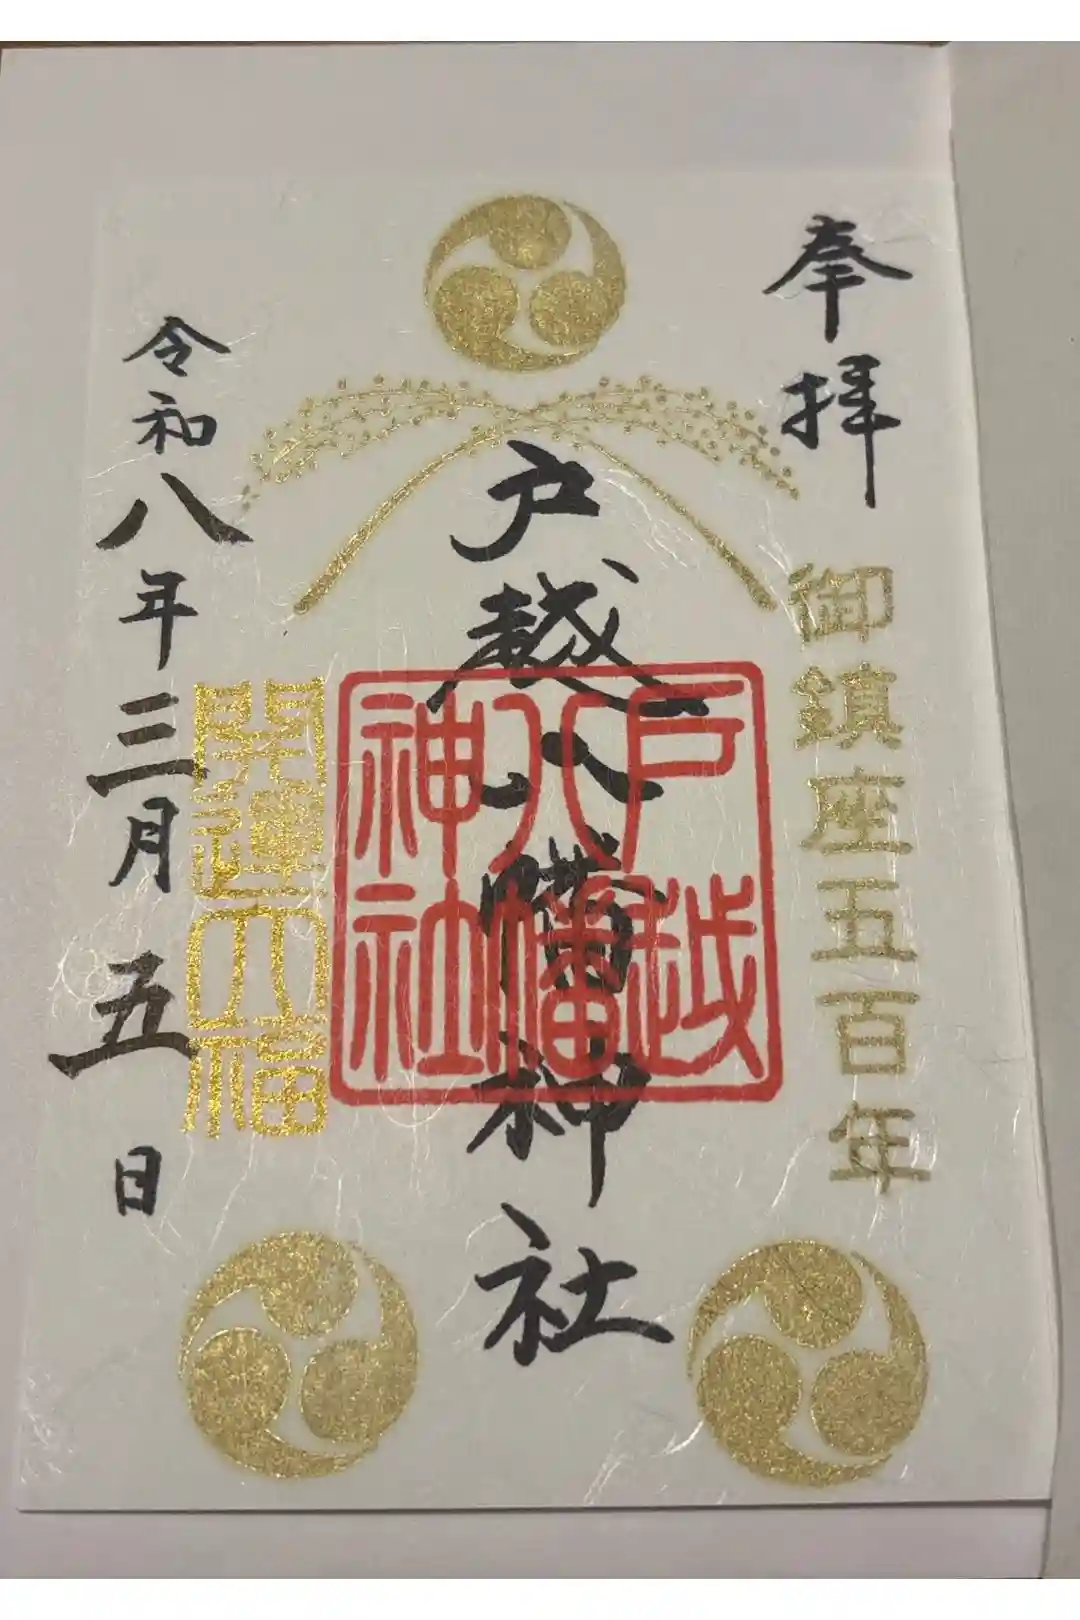 奉拝
御鎮座五百年
戸越八幡神社
戸越
八幡
神社
開運大福
令和八年三月五日